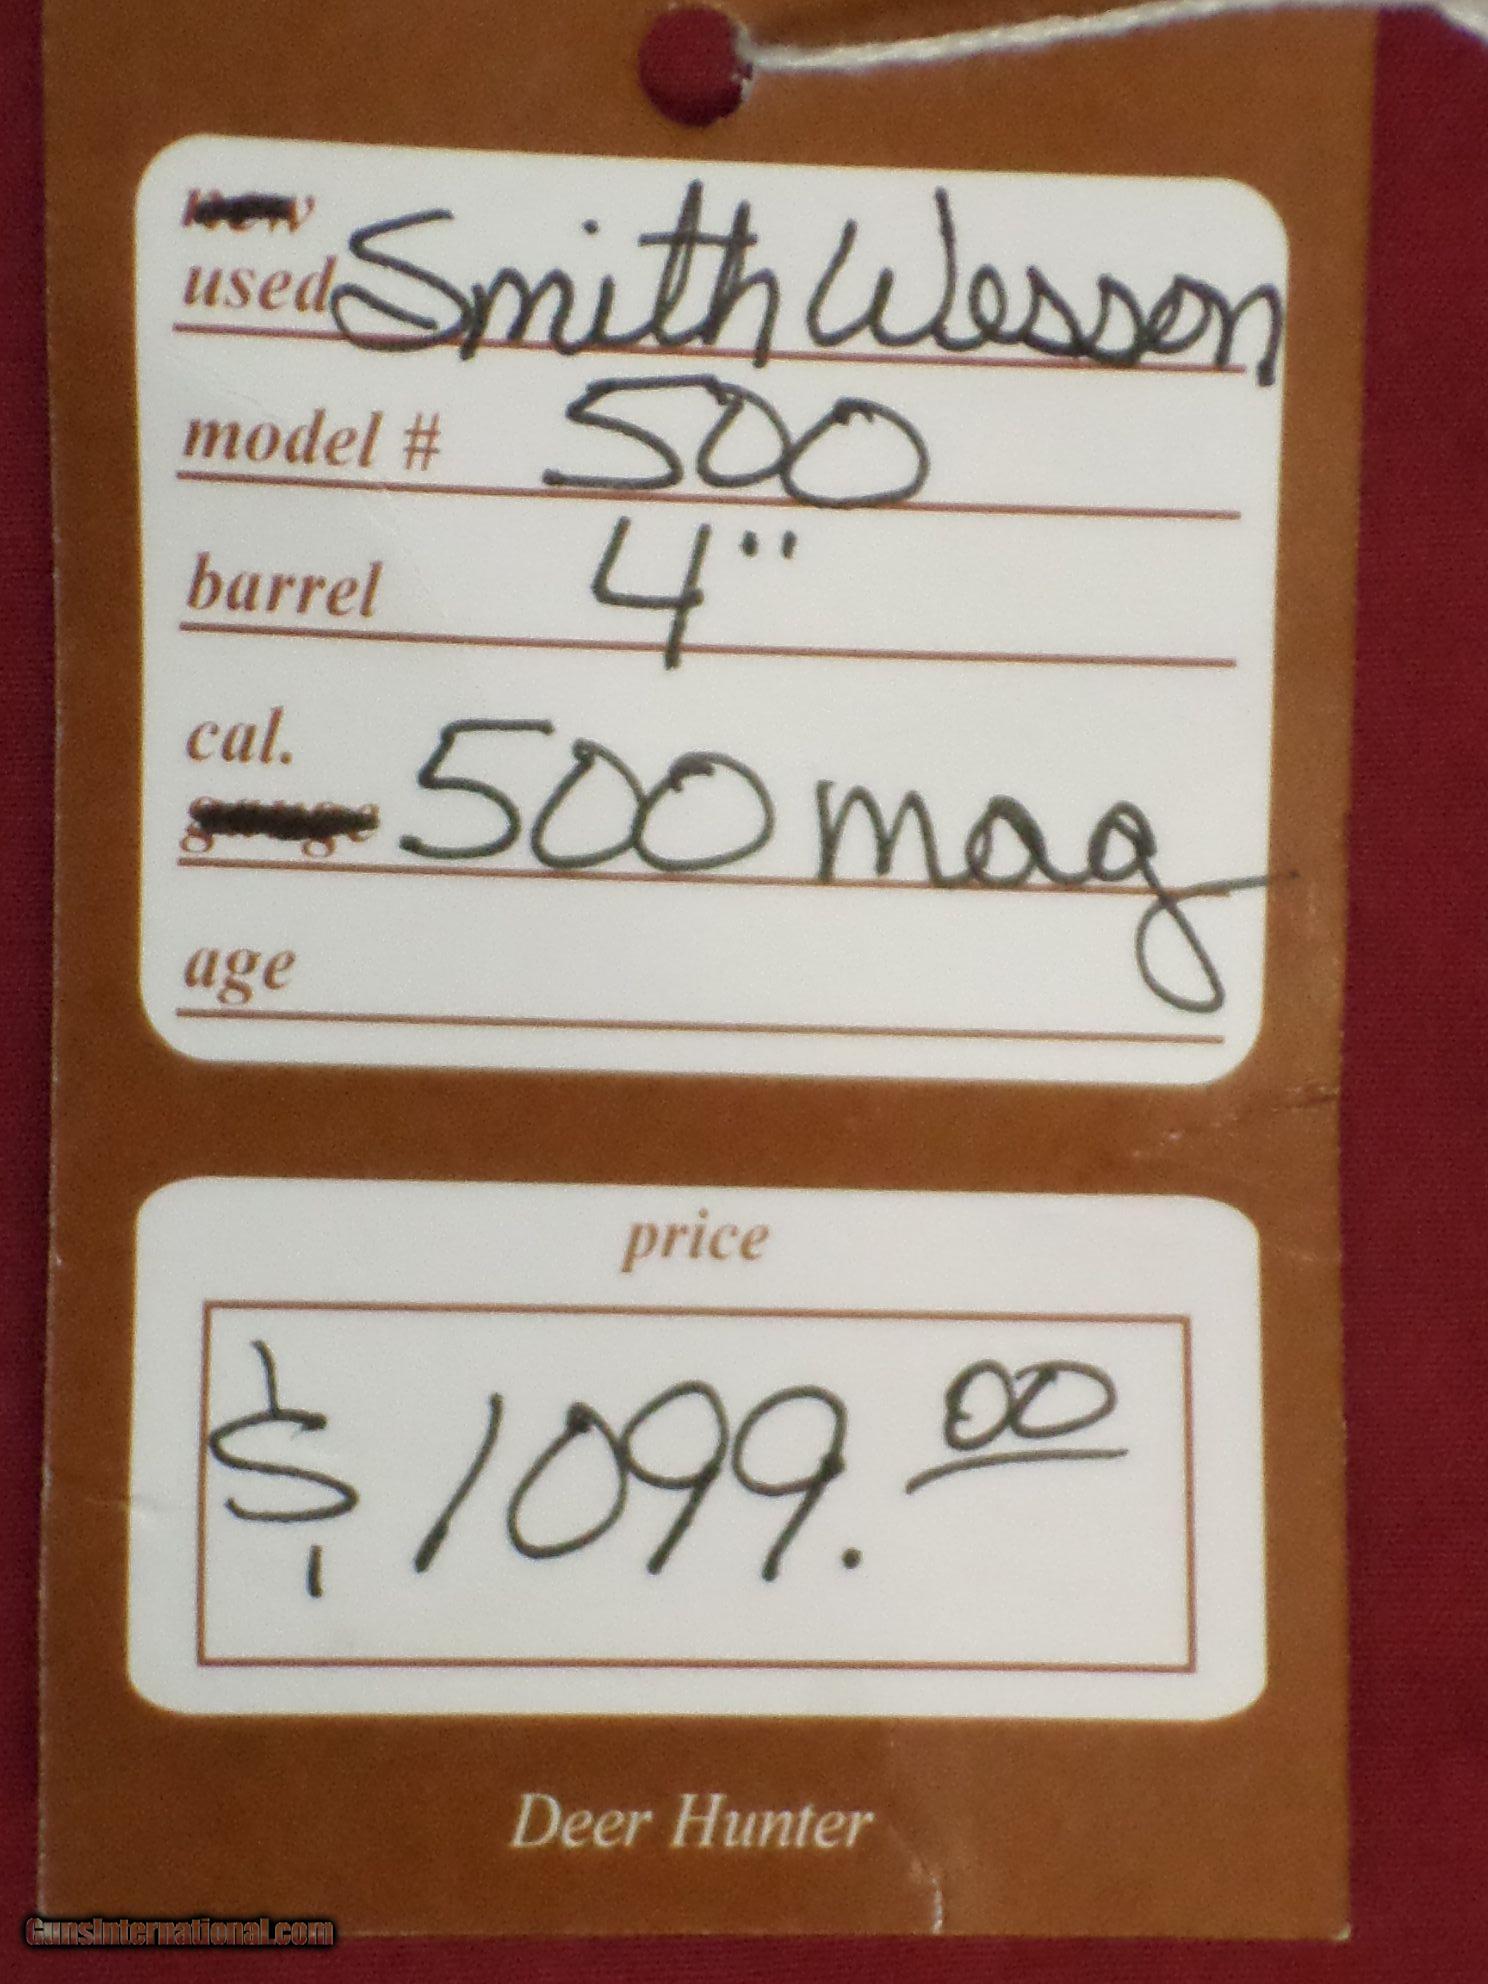 new
used Smith Wesson
model # 500
barrel 4"
cal.
gauge 500 mag
age
price
$ 1099.00
Deer Hunter
GunsInternational.com